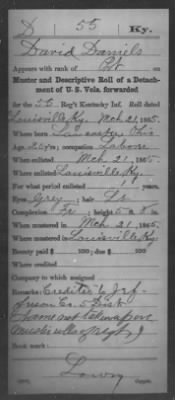 D 55 Ky.
David Daniels
Appears with rank of Pvt on
Muster and Descriptive Roll of a Detach-
ment of U. S. Vols. forwarded
for the 55 Reg't Kentucky Inf. Roll dated
Louisville Ky. Mch 21, 1865.
Where born Lancaster Ohio
Age 25 y'rs; occupation Labore
When enlisted Mch 21, 1865.
Where enlisted Louisville Ky.
For what period enlisted 1 years.
Eyes Grey; hair Lt
Complexion Fr; height 5 ft. 8 in.
When mustered in Mch 21, 1865.
Where mustered in Louisville Ky
Bounty paid $ 100; due $ 100
Where credited
Company to which assigned
Remarks: Credited to Jef-
ferson Co. 5 Dist
(name not taken up on
muster rolls of regt.)
Book mark:
Lowry
Copyist.